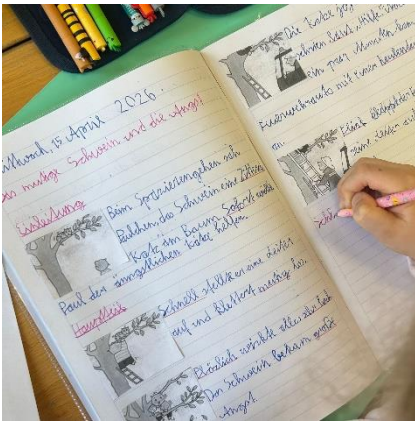 Mittwoch, 15 April 2026
Das mutige Schwein und die Angst
Einleitung
Beim Spazierengehen sah
Paulchen, das Schwein eine
Katze im Baum. Sofort wollte
Paul der ängstlichen Katze helfen.
Hauptteil
Schnell stellte er eine Leiter
auf und kletterte mutig ho.
Plötzlich wirkte alles sehr hoch
Das Schwein bekam große
Angst.
Die Katze
schrien laut „Hilfe"
ein paar Minuten kam
Feuerwehrauto mit einem
an.
eine
Schl